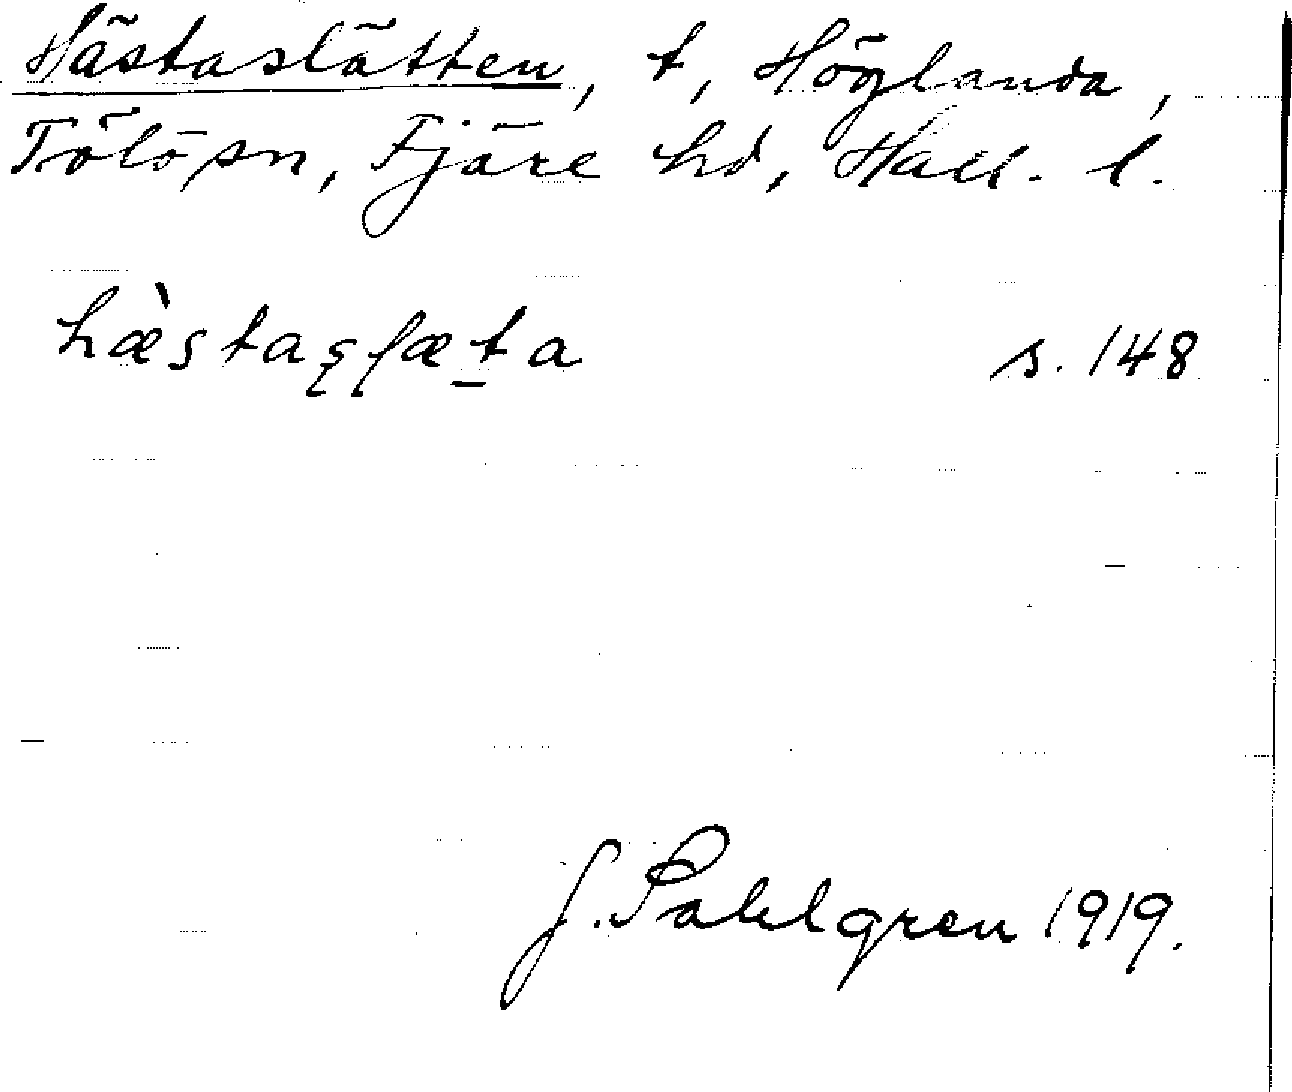 Hästaslätten, t, Höglanda,
Tölö sn, Fjäre hd, Hall. l.
s. 148
J. Sahlgren 1919.